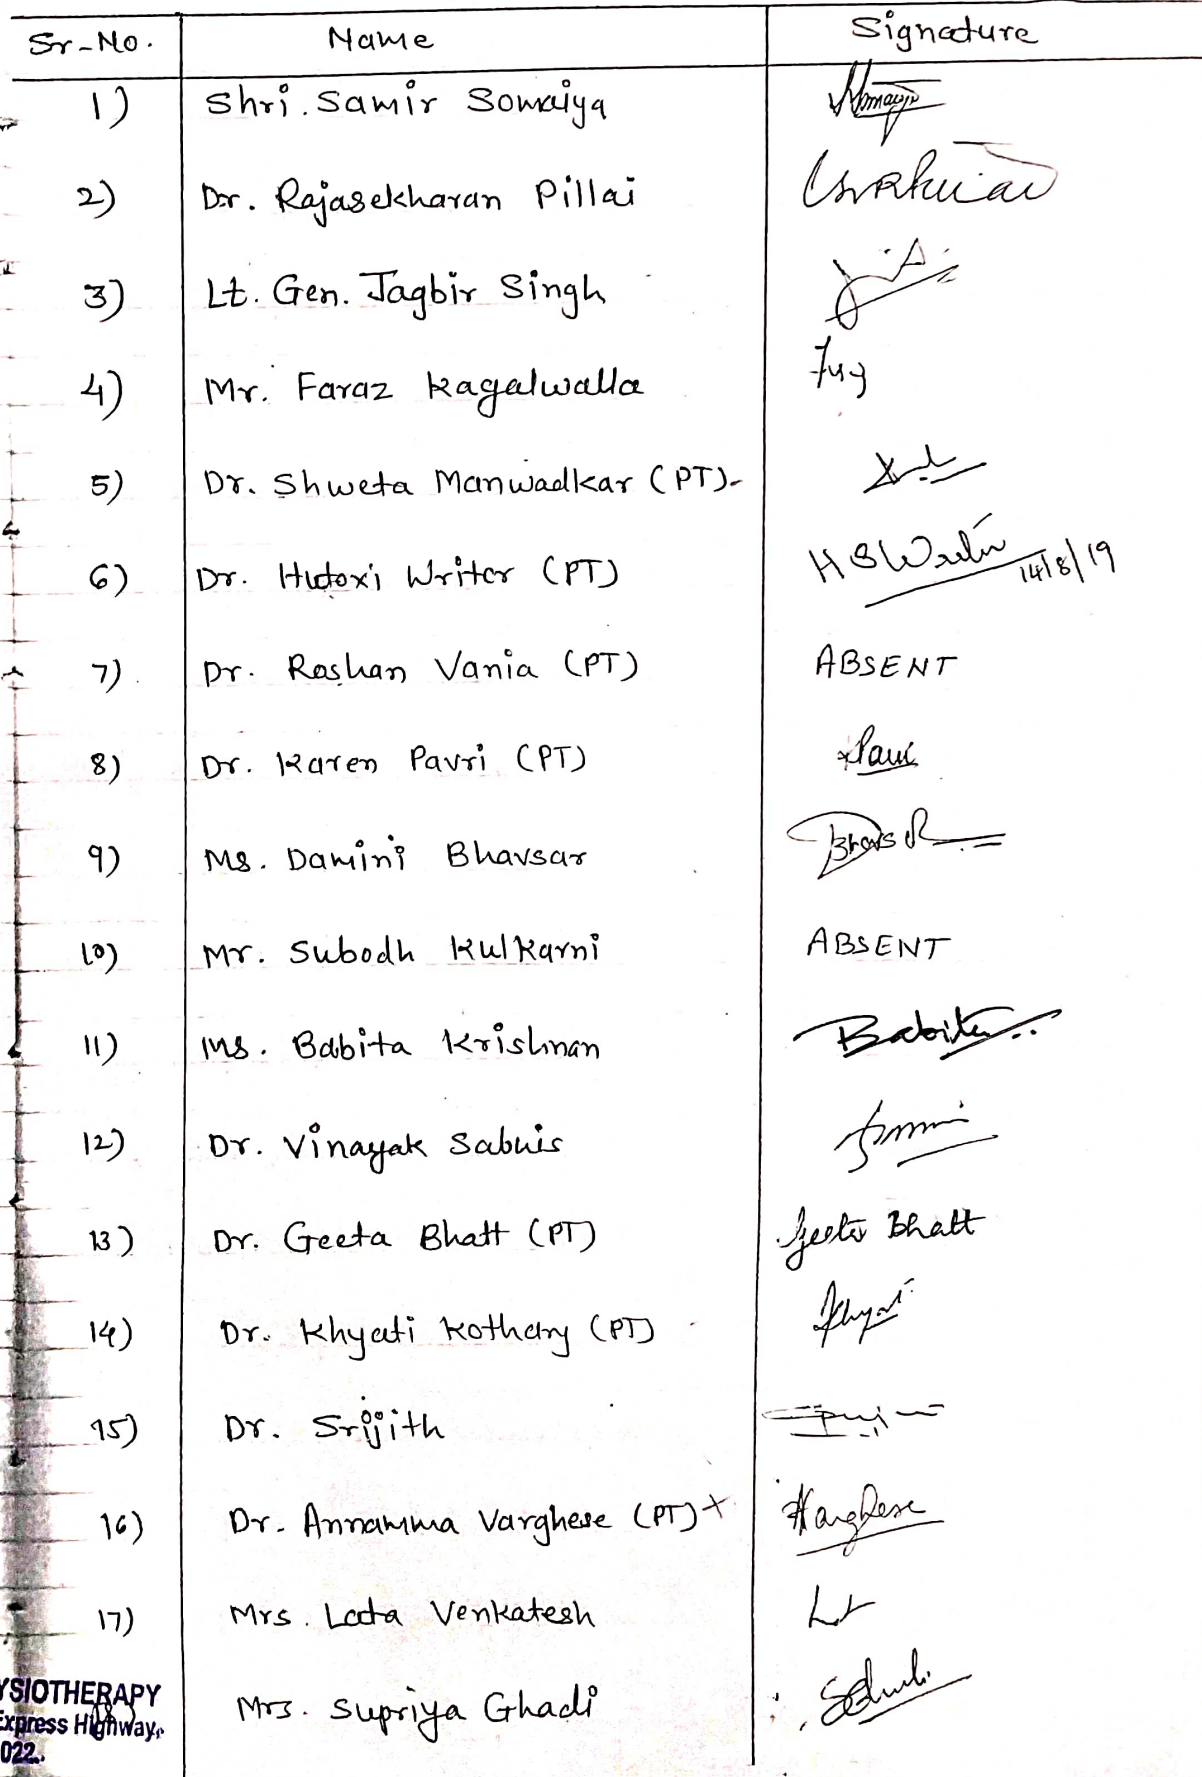 Sr-No. Name Signature
1) Shri. Samir Somaiya
2) Dr. Rajasekharan Pillai
3) Lt. Gen. Jagbir Singh
4) Mr. Faraz Kagalwalla
5) Dr. Shweta Manwadkar (PT)-
6) Dr. Hutoxi Writer (PT) HSWriter 14/8/19
7) Dr. Roshan Vania (PT) ABSENT
8) Dr. Karen Pavri (PT)
9) Ms. Damini Bhavsar
10) Mr. Subodh Kulkarni ABSENT
11) Ms. Babita Krishnan Babita
12) Dr. Vinayak Sabnis
13) Dr. Geeta Bhatt (PT) Geeta Bhatt
14) Dr. Khyati Kothary (PT) Khyati
15) Dr. Srijith
16) Dr. Annamma Varghese (PT) + Varghese
17) Mrs. Lata Venkatesh
18) Mrs. Supriya Ghadi
YSIOTHERAPY
Express Highway,
022.